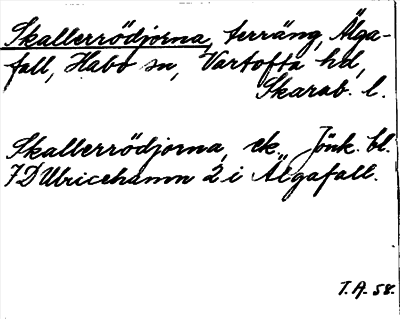 Skallerrödjorna, terräng, Älga-
fall, Habo sn, Vartofta hd,
Skarab. l.
Skallerrödjorna, ek. Jönk. bl.
7D Ulricehamn 2 i Älgafall.
T.A. 58.